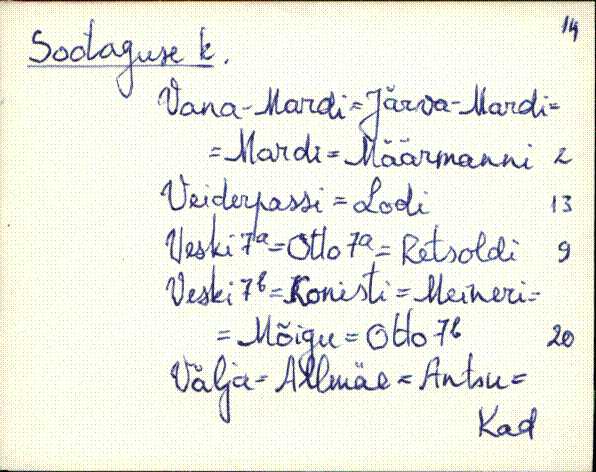 14
Sootaguse k.
Vana-Mardi = Järva-Mardi =
= Mardi = Määrmanni 2
Veiderpassi = Lodi 13
Veski 7a = Otto 7a = Retsoldi 9
Veski 7b = Konisti = Meineri =
= Mõigu = Otto 7b 20
Välja = Allmäe = Antsu =
Kad